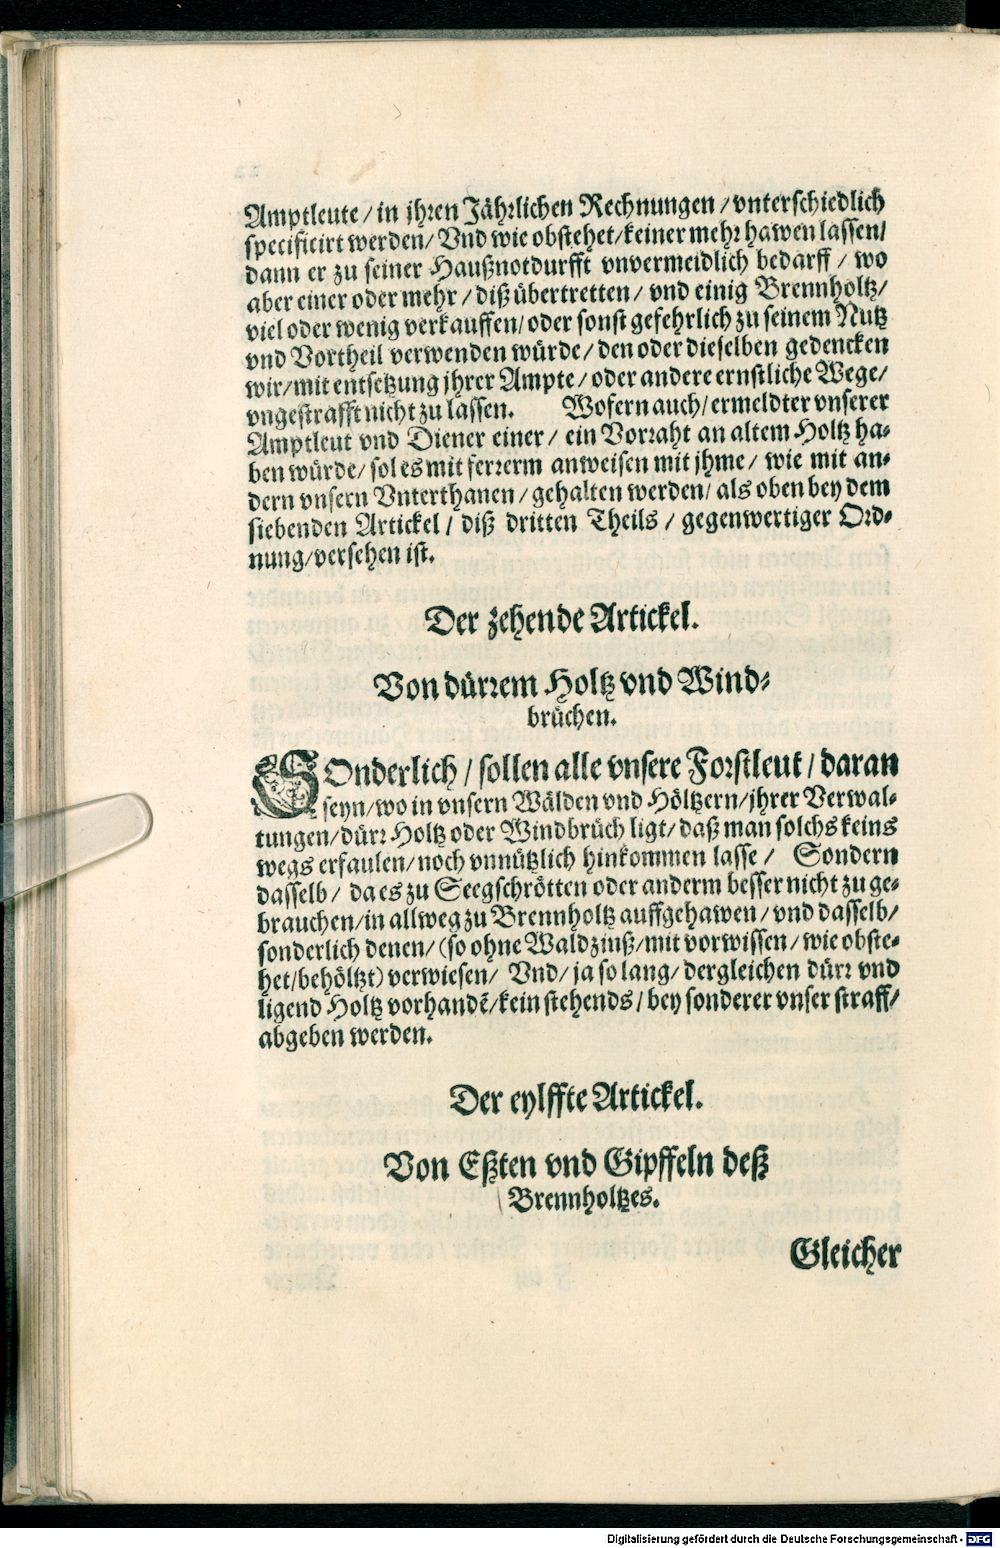 Amptleute / in jhren Jährlichen Rechnungen / vnterschiedlich
specificirt werden / Vnd wie obstehet / keiner mehr hawen lassen /
dann er zu seiner Haußnotdurfft vnvermeidlich bedarff / wo
aber einer oder mehr / diß übertretten / vnd einig Brennholtz /
viel oder wenig verkauffen / oder sonst gefehrlich zu seinem Nutz
vnd Vortheil verwenden würde / den oder dieselben gedencken
wir / mit entsetzung jhrer Ampte / oder andere ernstliche Wege /
vngestrafft nicht zu lassen. Wofern auch / ermeldter vnserer
Amptleut vnd Diener einer / ein Vorraht an altem Holtz ha-
ben würde / sol es mit ferrerm anweisen mit jhme / wie mit an-
dern vnsern Vnterthanen / gehalten werden / als oben bey dem
siebenden Artickel / diß dritten Theils / gegenwertiger Ord-
nung / versehen ist.
Der zehende Artickel.
Von dürrem Holtz vnd Wind-
brüchen.
SOnderlich / sollen alle vnsere Forstleut / daran
seyn / wo in vnsern Wälden vnd Höltzern / jhrer Verwal-
tungen / dürr Holtz oder Windbrüch ligt / daß man solchs keins
wegs erfaulen / noch vnnützlich hinkommen lasse / Sondern
dasselb / da es zu Seegschrötten oder anderm besser nicht zu ge-
brauchen / in allweg zu Brennholtz auffgehawen / vnd dasselb /
sonderlich denen / (so ohne Waldzinß / mit vorwissen / wie obste-
het / behöltzt) verwiesen / Vnd / ja so lang / dergleichen dürr vnd
ligend Holtz vorhandē / kein stehends / bey sonderer vnser straff /
abgeben werden.
Der eylffte Artickel.
Von Eßten vnd Gipffeln deß
Brennholtzes.
Gleicher
Digitalisierung gefördert durch die Deutsche Forschungsgemeinschaft - DFG